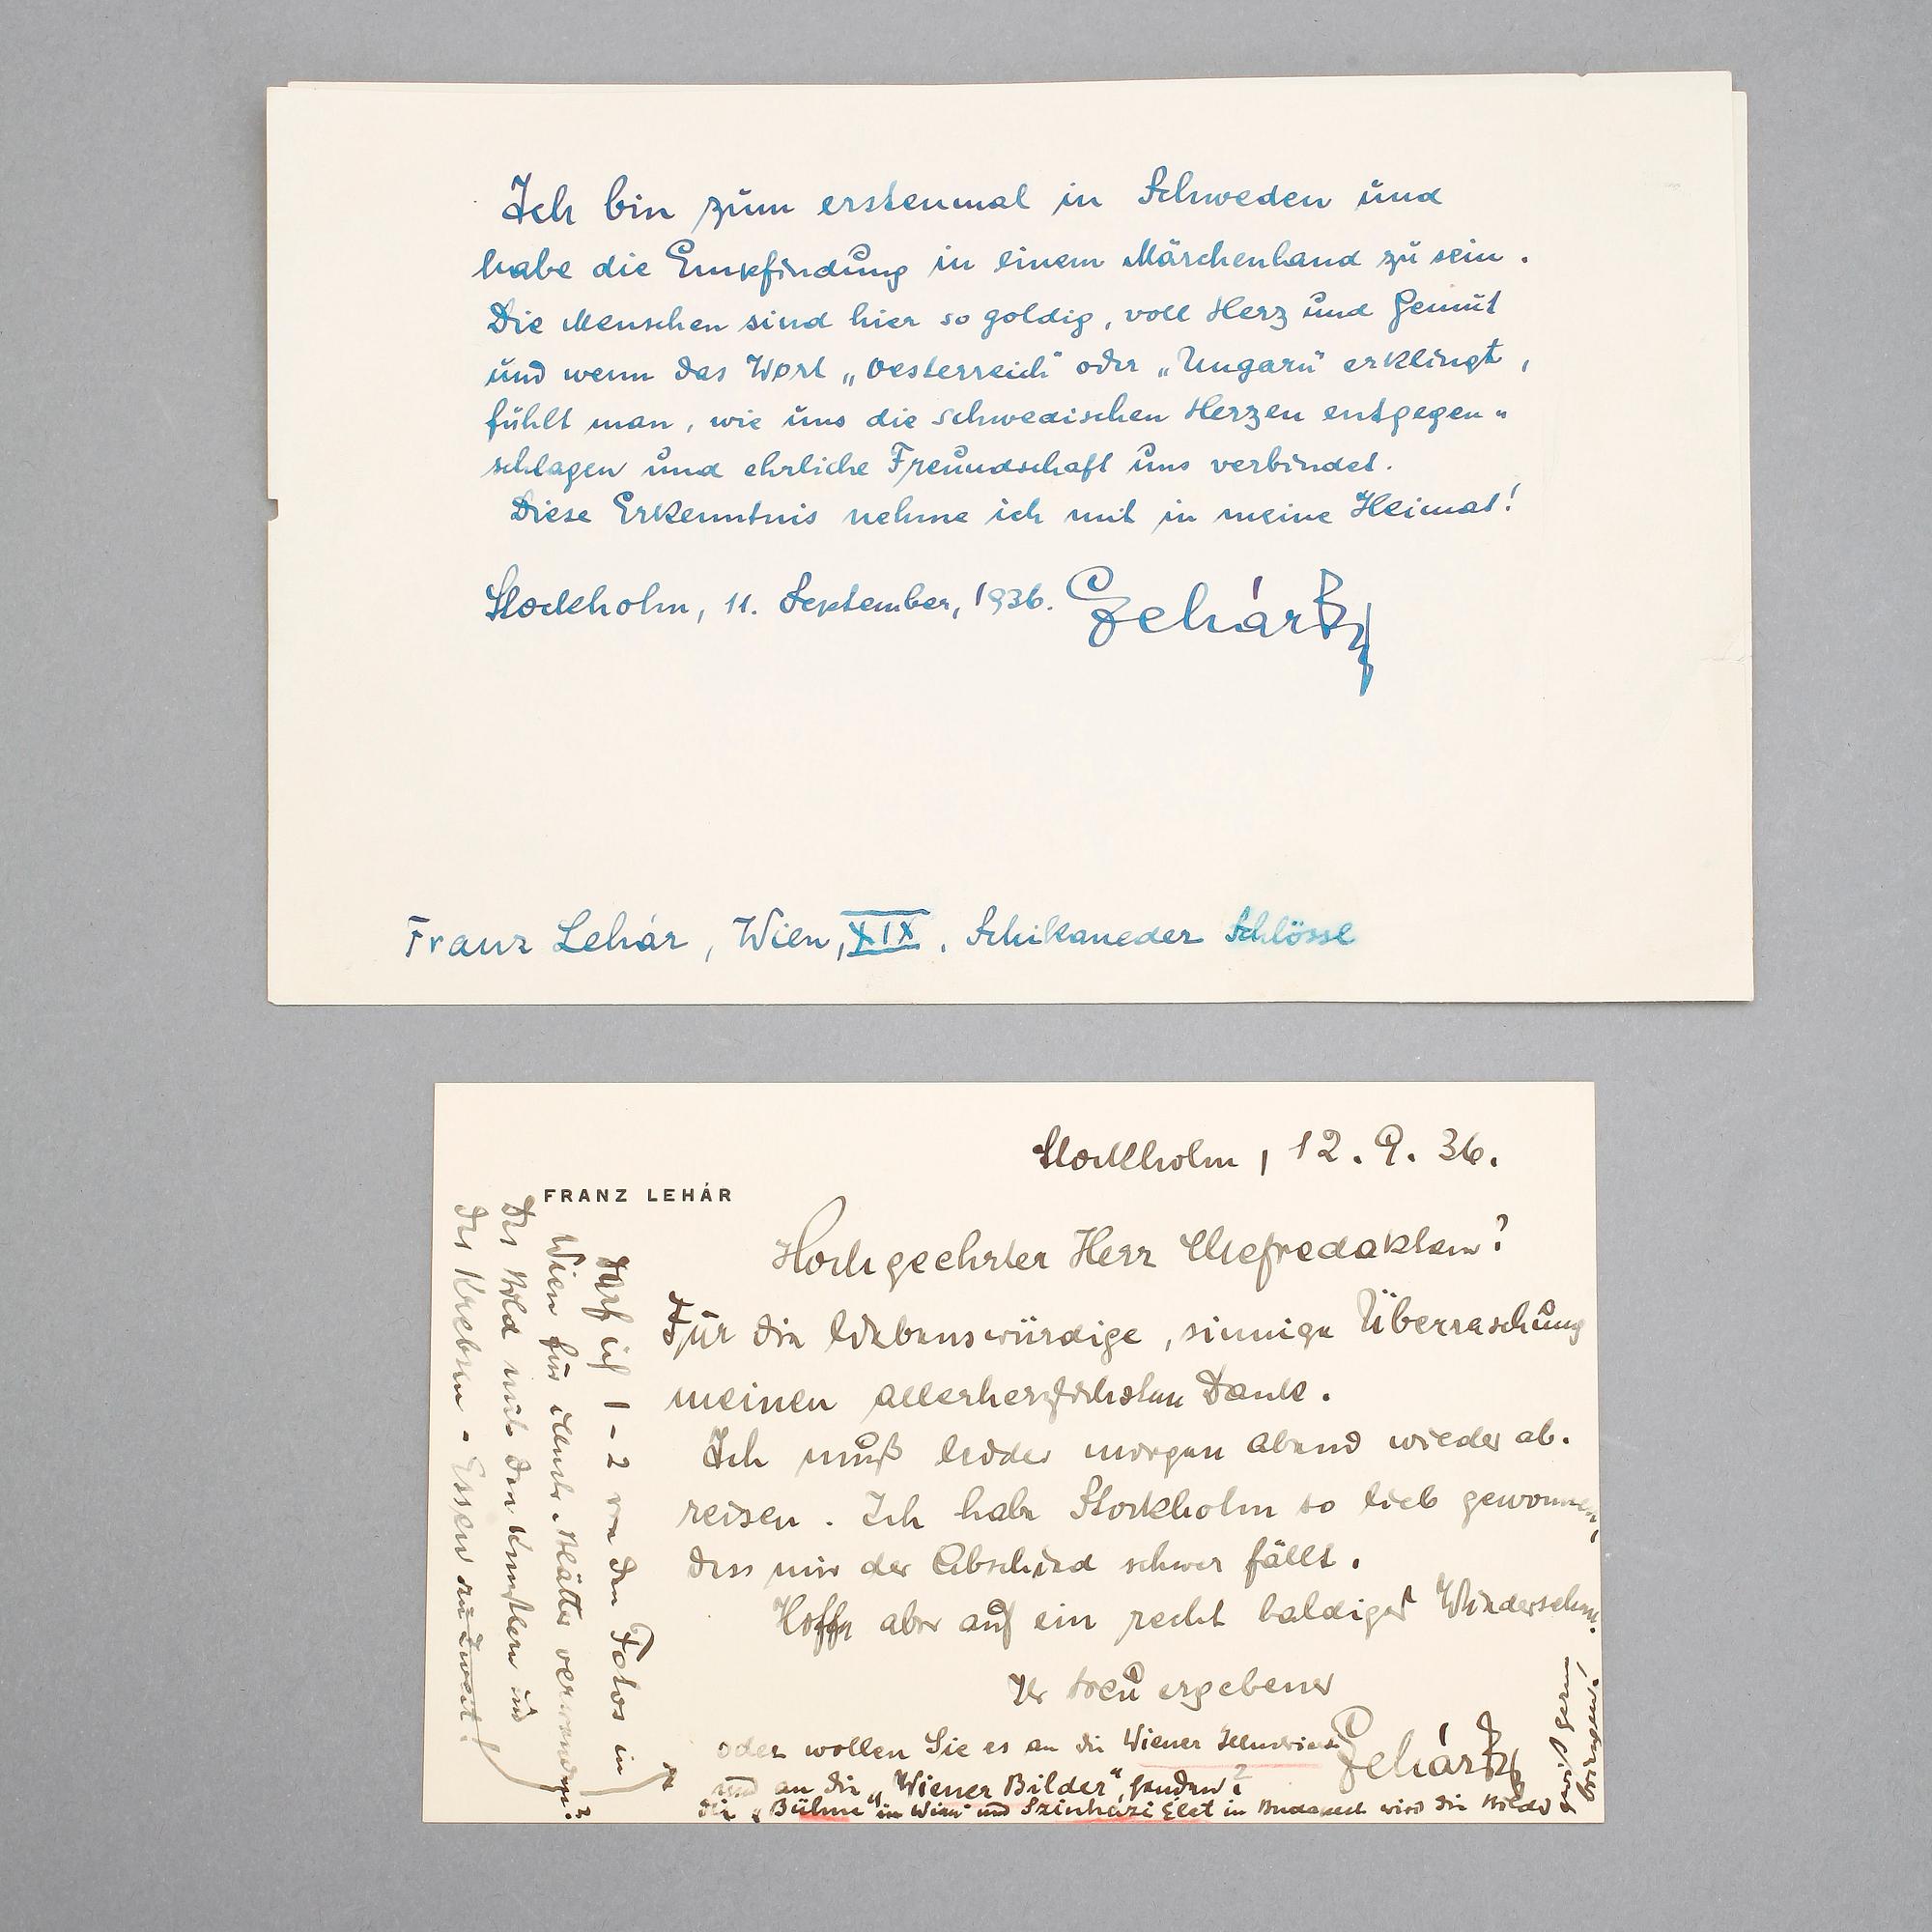 Ich bin zum erstenmal in Schweden und
habe die Empfindung in einem Märchenland zu sein.
Die Menschen sind hier so goldig, voll Herz und Gemüt
und wenn das Wort „Oesterreich" oder „Ungarn" erklingt,
fühlt man, wie uns die schwedischen Herzen entgegen-
schlagen und ehrliche Freundschaft uns verbindet.
Diese Erkenntnis nehme ich mit in meine Heimat!
Stockholm, 11. September, 1936. Lehár
Franz Lehár, Wien, XIX, Schikaneder Schlössl
Stockholm, 12. 9. 36.
FRANZ LEHÁR
Hochgeehrter Herr Chefredakteur!
Für die liebenswürdige, sinnige Überraschung
meinen allerherzlichsten Dank.
Ich muß leider morgen abend wieder ab-
reisen. Ich habe Stockholm so lieb gewonnen,
dass mir der Abschied schwer fällt.
Hoffe aber auf ein recht baldiges Wiedersehen.
Ihr treu ergebener
Lehár
Darf ich 1-2 von den Fotos in
Wien für illustr. Blätter verwenden?
Das Bild mit den Künstlern und
das Krebsen-Essen zu Zweit!
oder wollen Sie es an die Wiener
und an die „Wiener Bilder" senden?
die „Bühne" in Wien und Szinházi Élet in Budapest wird die Bilder
gewiß gern
bringen!